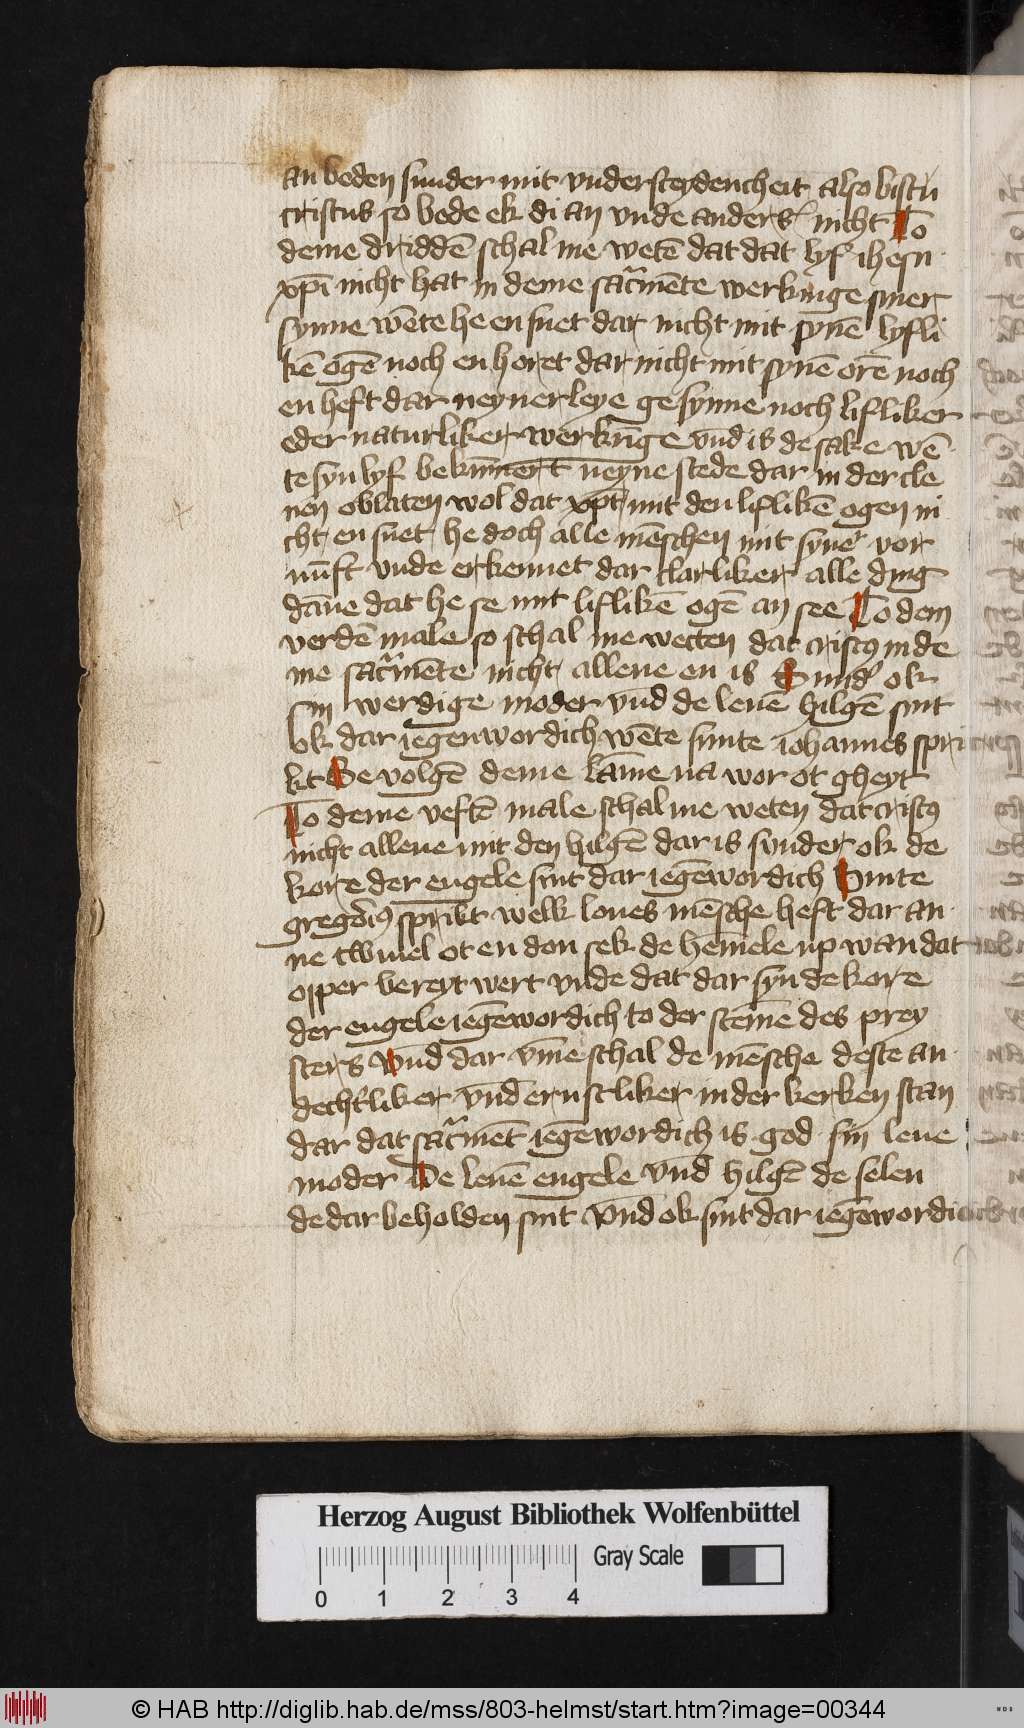 an beden sunder mit vnderscheydencheit also bistu
cristus so bede ek di an vnde anders nicht To
deme driddē schal me wetē dat dat lyf ihesu
xp̄i nicht hat in deme sac̄mēte werkinge siner
synne wēte he en suet dar nicht mit synē lyfli
kē ogē noch en horet dar nicht mit synē orē noch
en heft dar neynerleye gesynne noch lifliker
eder naturliker werkīge vn̄d is de sake wē
te syn lyf bekūmert neyne stede dar in der cle
nen oblaten wol dat xp̄c mit den liflikē ogen ni
cht en suet he doch alle mēschen mit syner vor
nūft vnde erkennet dar clarliker alle ding
dāne dat he se mit liflikē ogē an see To dem
verdē male so schal me wetten dat cristꝰ in de
me sac̄mēte nicht allene en is Sunder ok
sin werdige moder vn̄d de leuē hilgē sint
ok dar iegenwordich wēte sunte iohannes spri
kt Se volgē deme lāme na wor ot gheyt
To deme veftē male schal me weten dat cristꝰ
nicht allene mit den hilgē dar is sunder ok de
kore der engele sint dar iegēwordich Sunte
gregoriꝰ sprikt welk loues mēsche heft dar an
ne twiuel ot en don sek de hēmele up wan dat
opper bereyt wert vnde dat dar syn de kore
der engele iegēwordich to der stēme des prey
sters vn̄d dar vm̄e schal de mēsche deste an
dechtliker vn̄d ernstliker in der kerken stan
dar dat sac̄mēt iegēwordich is god sin leue
moder De leuē engele vn̄d hilgē de selen
de dar beholden sint Vn̄d ok sint dar iegēwordich
Herzog August Bibliothek Wolfenbüttel
Gray Scale
0 1 2 3 4
© HAB http://diglib.hab.de/mss/803-helmst/start.htm?image=00344